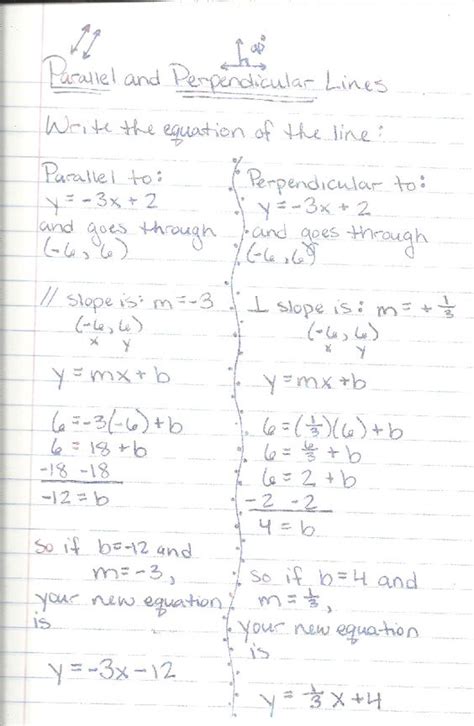 90°
Parallel and Perpendicular Lines
Write the equation of the line:
Parallel to:
y = -3x + 2
and goes through
(-6, 6)
// slope is: m = -3
(-6, 6)
x y
y = mx + b
6 = -3(-6) + b
6 = 18 + b
-18 -18
-12 = b
so if b = -12 and
m = -3,
your new equation
is
y = -3x - 12
Perpendicular to:
y = -3x + 2
and goes through
(-6, 6)
⊥ slope is: m = + 1/3
(-6, 6)
x y
y = mx + b
6 = (1/3)(6) + b
6 = 6/3 + b
6 = 2 + b
-2 -2
4 = b
so if b = 4 and
m = 1/3,
your new equation
is
y = 1/3 x + 4